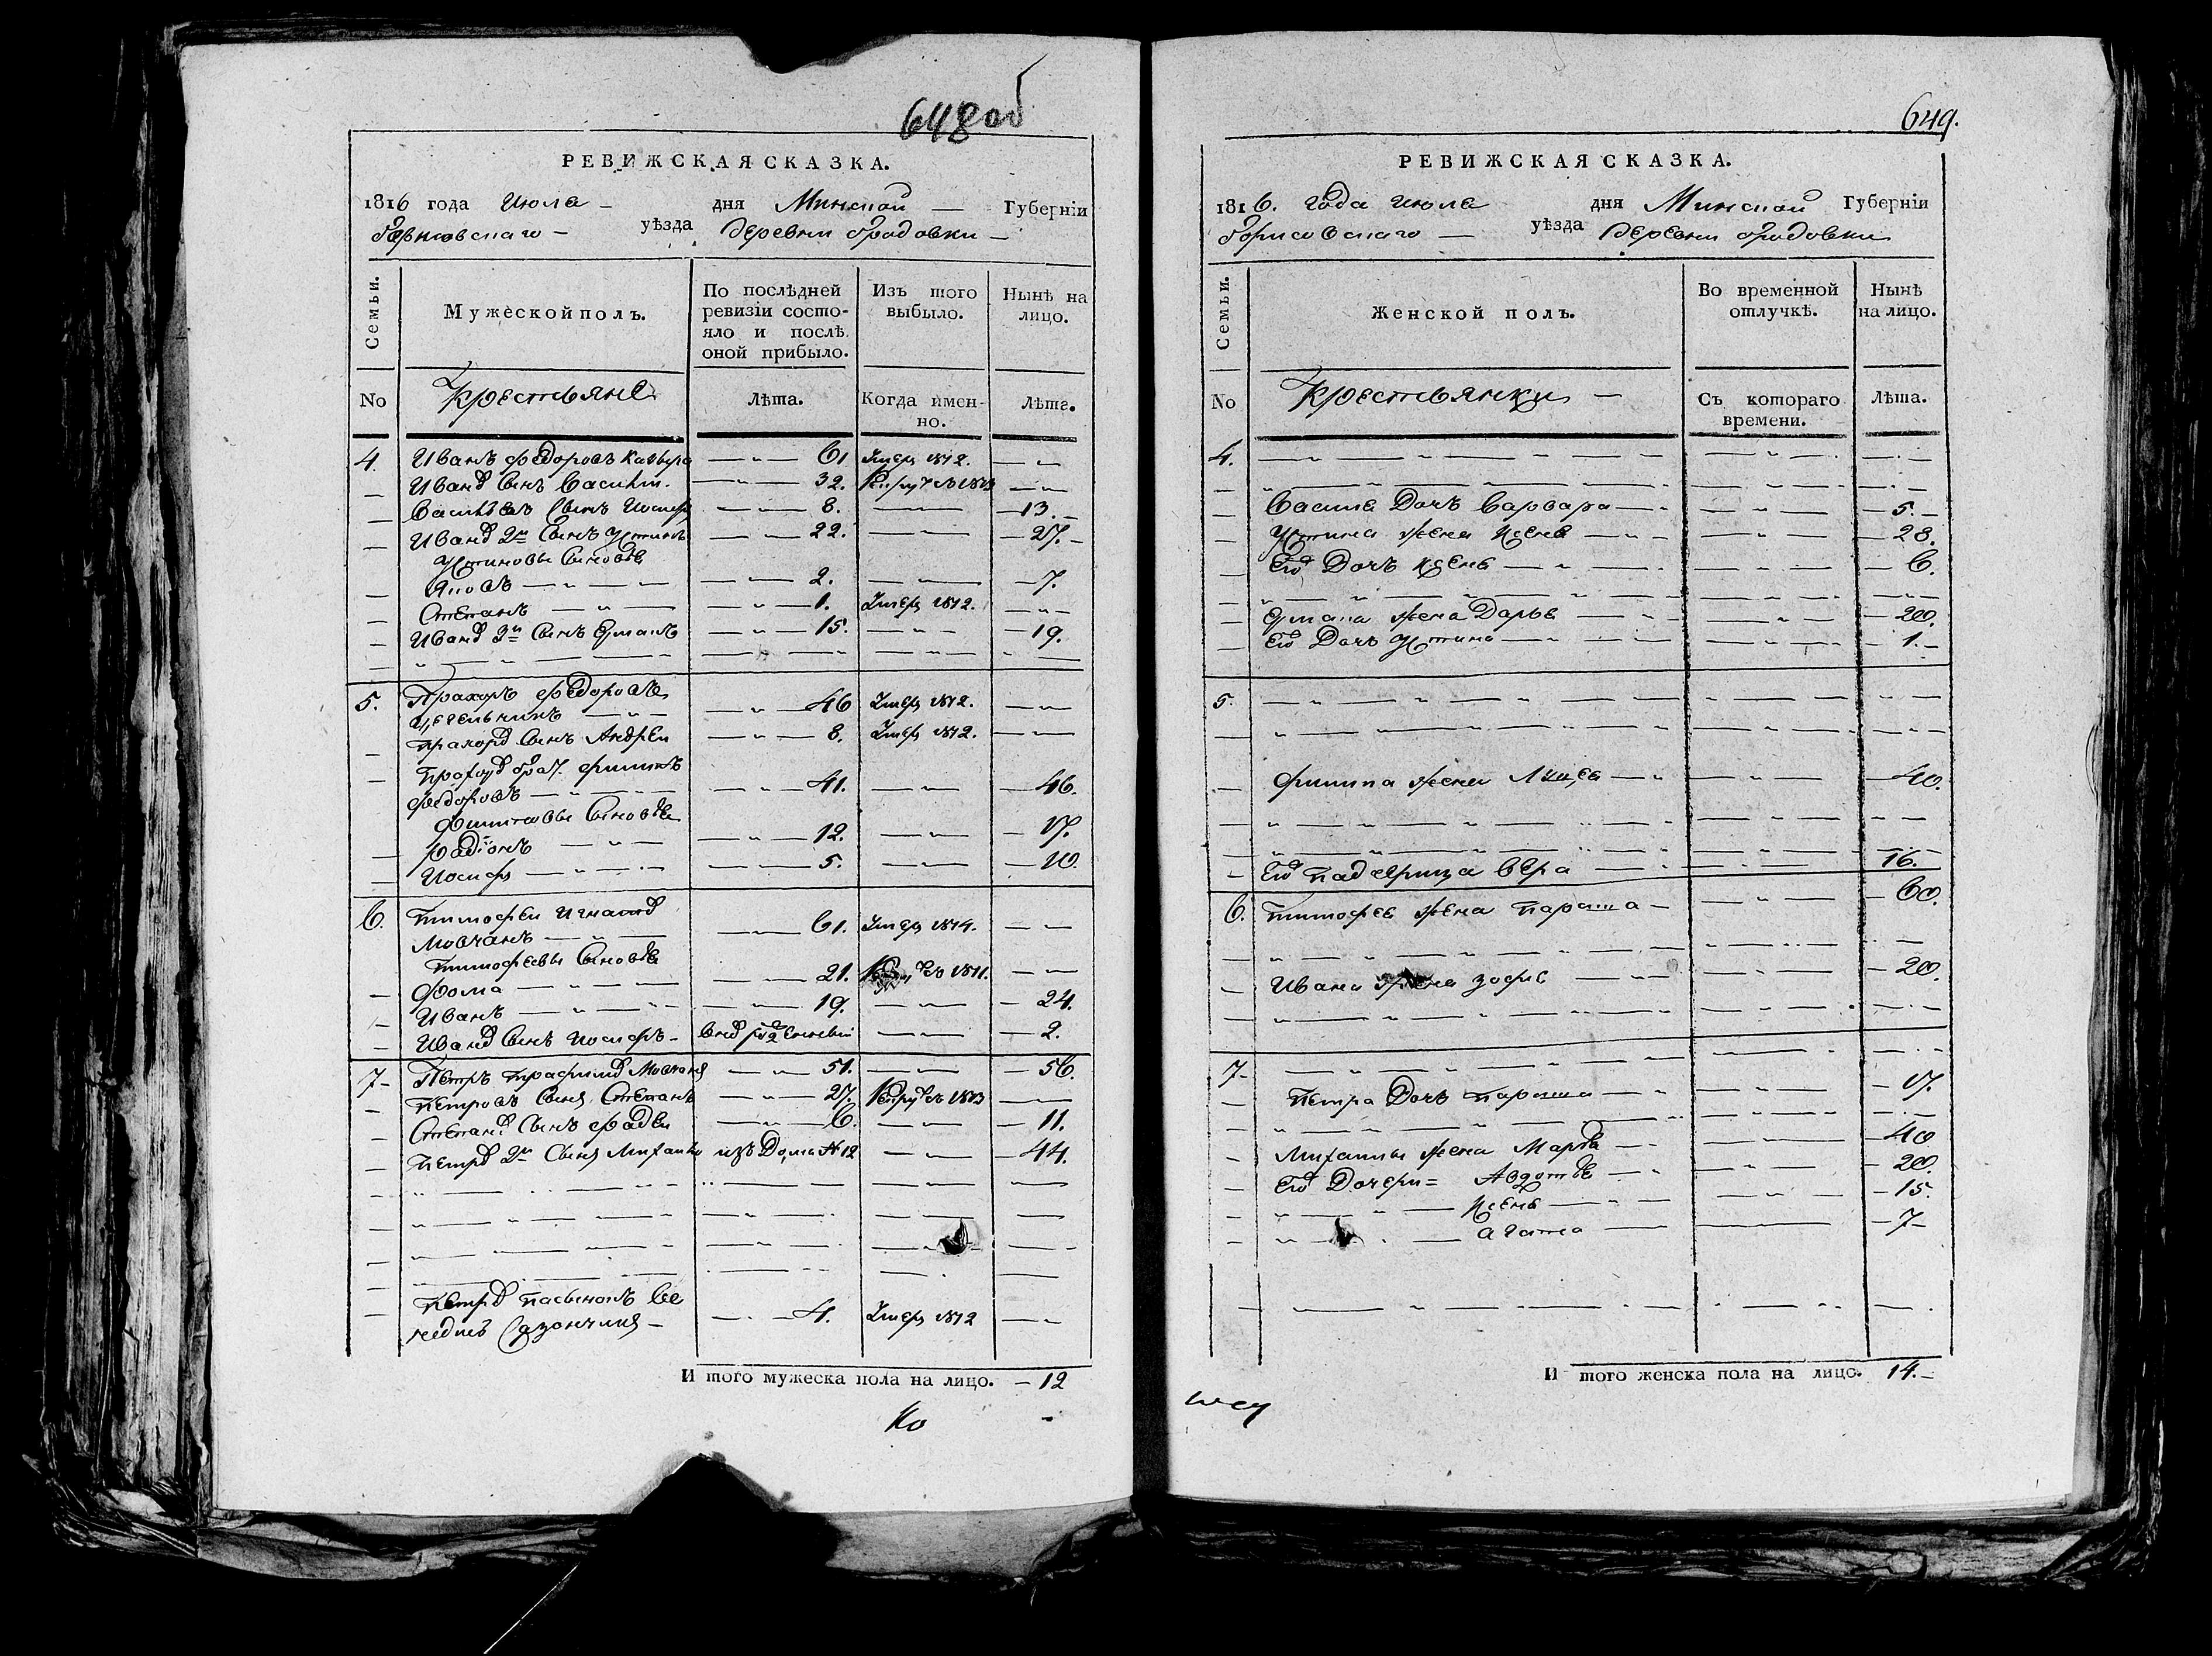 648 об
РЕВИЖСКАЯ СКАЗКА.
1816 года Июля дня Минской Губерніи
Борисовскаго уѣзда деревни Бродовки
Семьи.
Мужеской полъ.
По послѣдней ревизіи состояло и послѣ оной прибыло.
Изъ того выбыло.
Нынѣ на лицо.
No
Крестьяне
Лѣта.
Когда имен-
но.
Лѣта.
4. Иванъ Федоровъ 61 Умер 1812.
Иванов сынъ Василий. 32. 1813
Васильевъ сынъ Иосиф 8. 13.
Иванов 2й сынъ Устинъ 22. 27.
Устиновы сыновья
Яковъ 2. 7.
Степанъ 1. Умер 1812.
Иванов 3й сынъ Ермакъ 15. 19.
5. Прахоръ Федоровъ
46 Умер 1812.
Прахоров сынъ Андрей 8. Умер 1812.
Прахоров брат Филипъ
Федоровъ 41. 46.
Филиповы сыновья
Радіонъ 12. 17.
Иосиф 5. 10.
6. Тимофей Игнатов
Мовчанъ 61. Умер 1814.
Тимофеевы сыновья
Фома 21. 1811.
Иванъ 19. 24.
Иванов сынъ Иосифъ 2.
7. Петръ Мовчан 51. 56.
Петровъ сын Степанъ 27. 1813
Степанов сынъ Фадей 6. 11.
Петров 2й сын Михайло изъ дому № 12 44.
Петров пасынокъ
4. Умер 1812
И того мужеска пола на лицо. 12
Ко
649.
РЕВИЖСКАЯ СКАЗКА.
1816. года июля дня Минской Губерніи
Борисовскаго уѣзда деревни Бродовки
Семьи.
Женской полъ.
Во временной отлучкѣ.
Нынѣ на лицо.
No
Крестьянки
Съ котораго
времени.
Лѣта.
4.
Василя дочъ Варвара 5.
Устина жена Ксеня 28.
Его дочъ Ксеня 6.
Ермака жена Дарья 20.
Его дочъ Устина 1.
5.
Филипа жена 40.
Его падчерица Вера 16.
6. Тимофея жена Параша 60.
Ивана жена Зофия 20.
7.
Петра дочъ Параша 17.
Михайлы жена Марья 40
Его дочери = Авдотья 20.
Ксеня 15.
Агата 7
И того женска пола на лицо. 14.